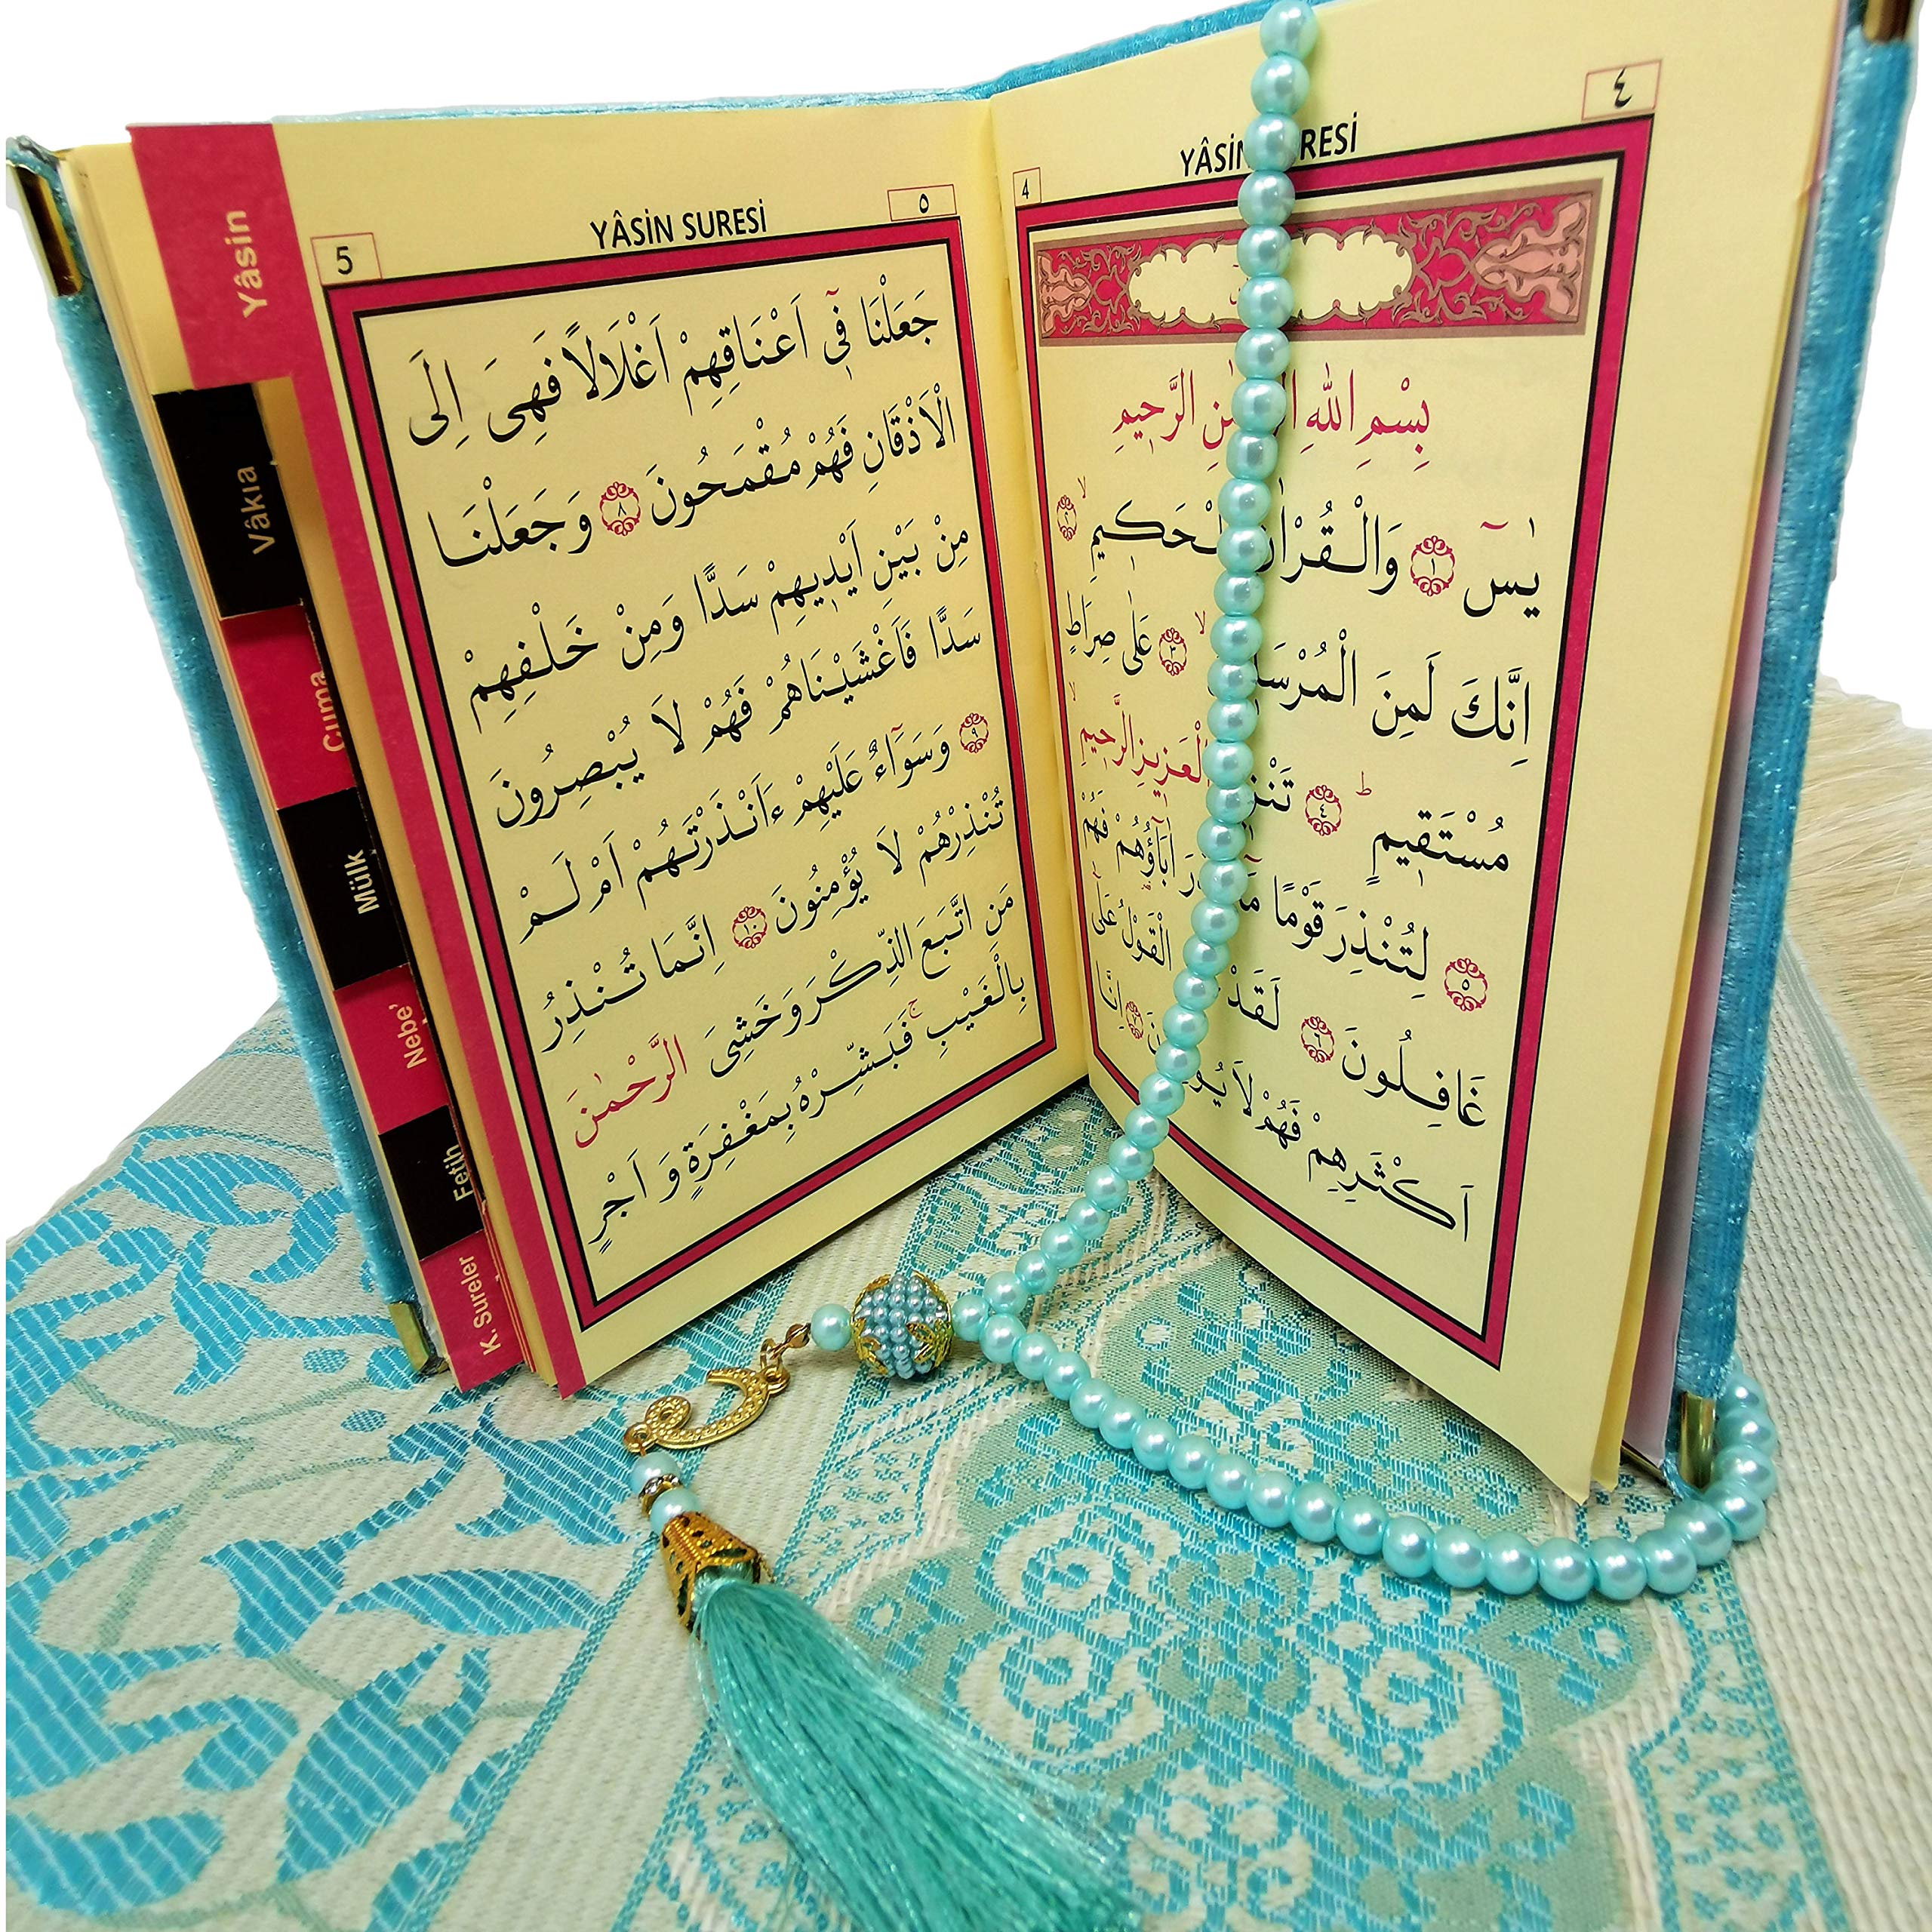 YÂSİN RESİ
٤
4
بِسْمِ اللهِ الرَّحِيمِ
يٰسٓ ١ وَالْقُرْاٰنِ الْحَكِيمِ ٢
اِنَّكَ لَمِنَ الْمُرْسَ ٣ عَلٰى صِرَاطٍ
مُسْتَقِيمٍ ٤ الْعَزِيزِ الرَّحِيمِ
٥ لِتُنْذِرَ قَوْمًا اٰبَآؤُهُمْ فَهُمْ
غَافِلُونَ ٦ لَقَدْ الْقَوْلُ عَلٰٓى
اَكْثَرِهِمْ فَهُمْ لَا يُؤْ ٧ اِنَّا
YÂSİN SURESİ
٥
5
جَعَلْنَا فِٓى اَعْنَاقِهِمْ اَغْلَالًا فَهِىَ اِلَى
الْاَذْقَانِ فَهُمْ مُقْمَحُونَ ٨ وَجَعَلْنَا
مِنْ بَيْنِ اَيْدِيهِمْ سَدًّا وَمِنْ خَلْفِهِمْ
سَدًّا فَاَغْشَيْنَاهُمْ فَهُمْ لَا يُبْصِرُونَ
٩ وَسَوَٓاءٌ عَلَيْهِمْ ءَاَنْذَرْتَهُمْ اَمْ لَمْ
تُنْذِرْهُمْ لَا يُؤْمِنُونَ ١٠ اِنَّمَا تُنْذِرُ
مَنِ اتَّبَعَ الذِّكْرَ وَخَشِىَ الرَّحْمٰنَ
بِالْغَيْبِ ۚ فَبَشِّرْهُ بِمَغْفِرَةٍ وَاَجْرٍ
Yâsin
Vâkıa
Cuma
Mülk
Nebe'
Fetih
K. Sureler